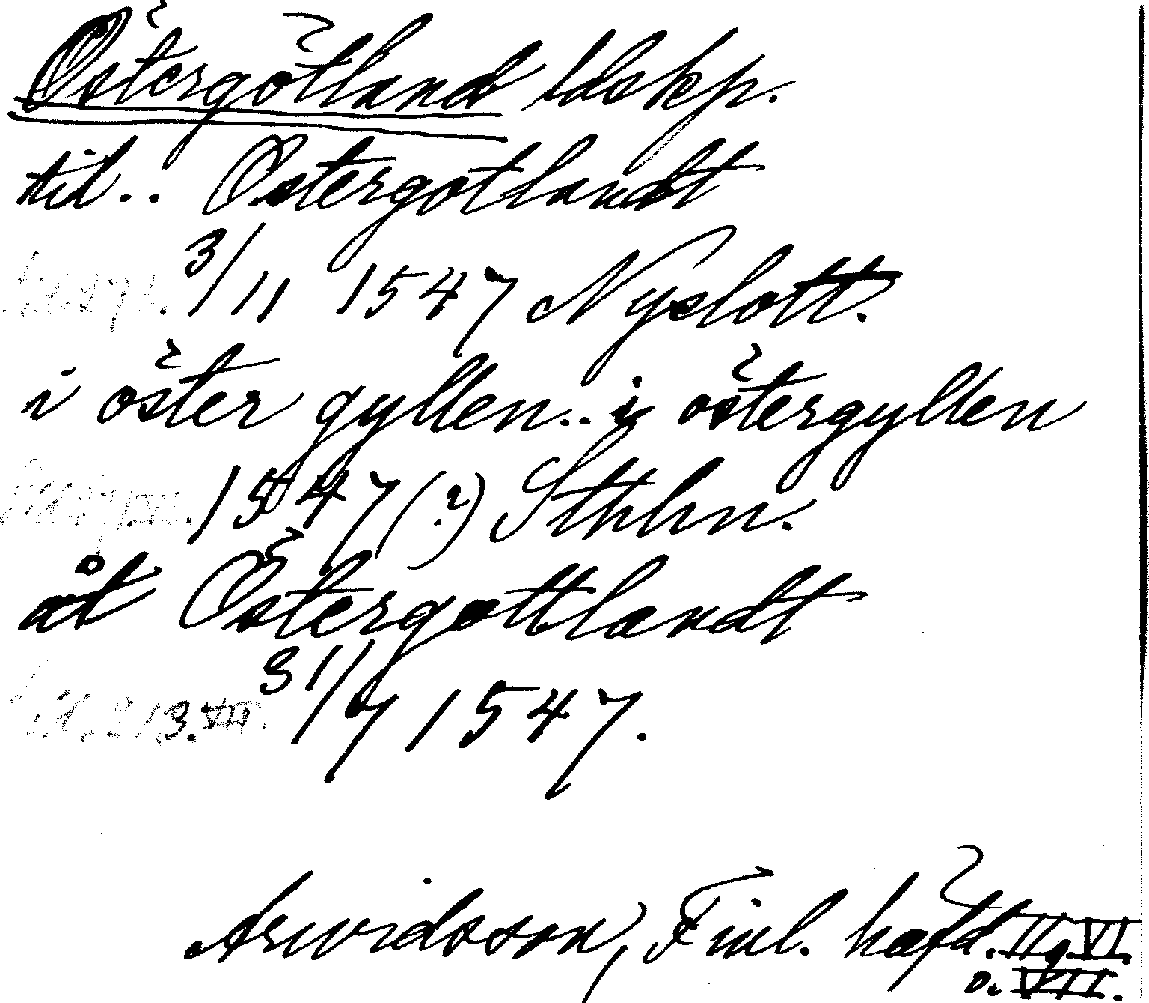 Östergötland ldskp.
til.. Östergotlandt
3/11 1547 Nyslott.
i öster gyllen.. i östergyllen
1547 (?) Sthlm.
åt Östergottlandt
31/7 1547.
Arwidsson, Finl. häfd. II, VI.
o. VII.